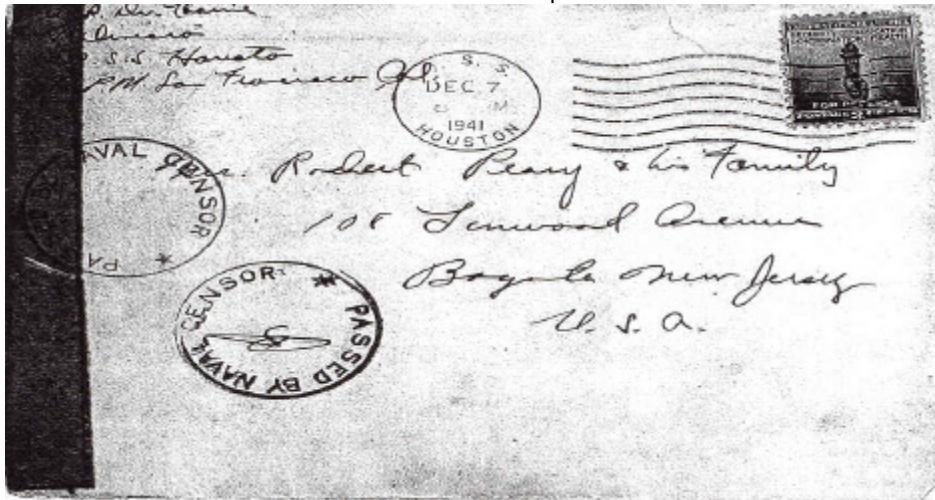 S.S. Housto
P.M. San Francisco Cal.
S. S.
DEC 7
M
1941
HOUSTON
FOR DEFENSE
NAVAL CENSOR
PA
Mr. Robert Peary & his Family
108 Linwood Avenue
Bogota New Jersey
U. S. A.
PASSED BY NAVAL CENSOR